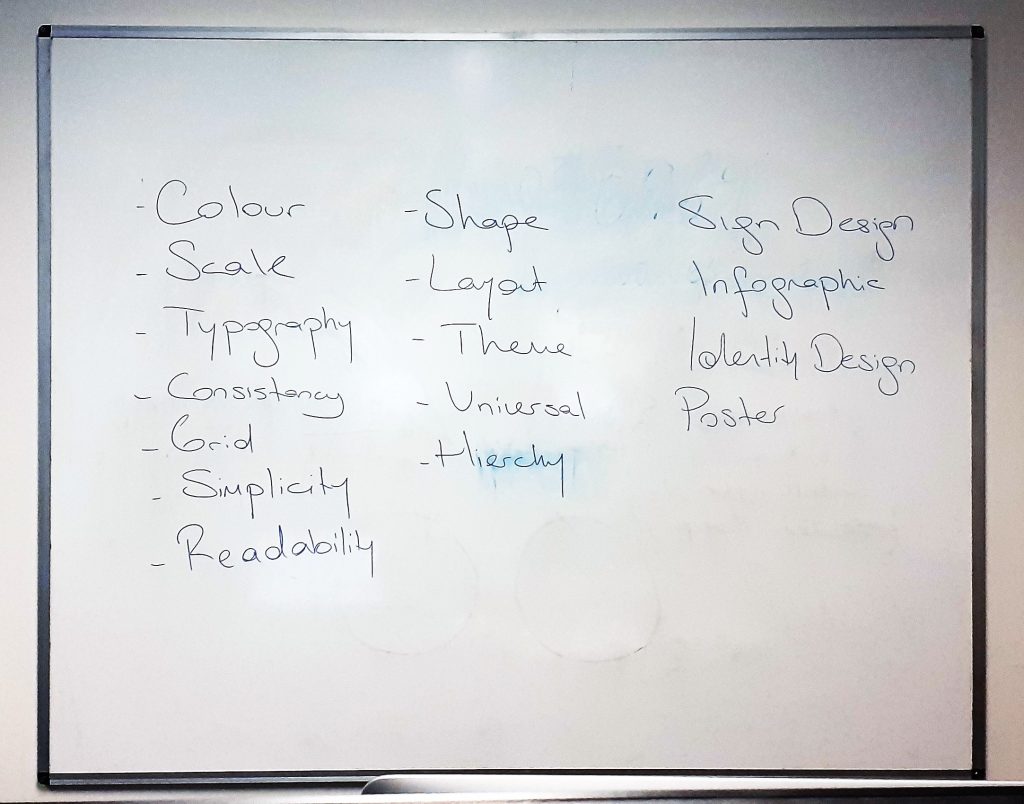 - Colour
- Scale
- Typography
- Consistency
- Grid
- Simplicity
- Readability
- Shape
- Layout
- Theme
- Universal
- Hierchy
Sign Design
Infographic
Identity Design
Poster